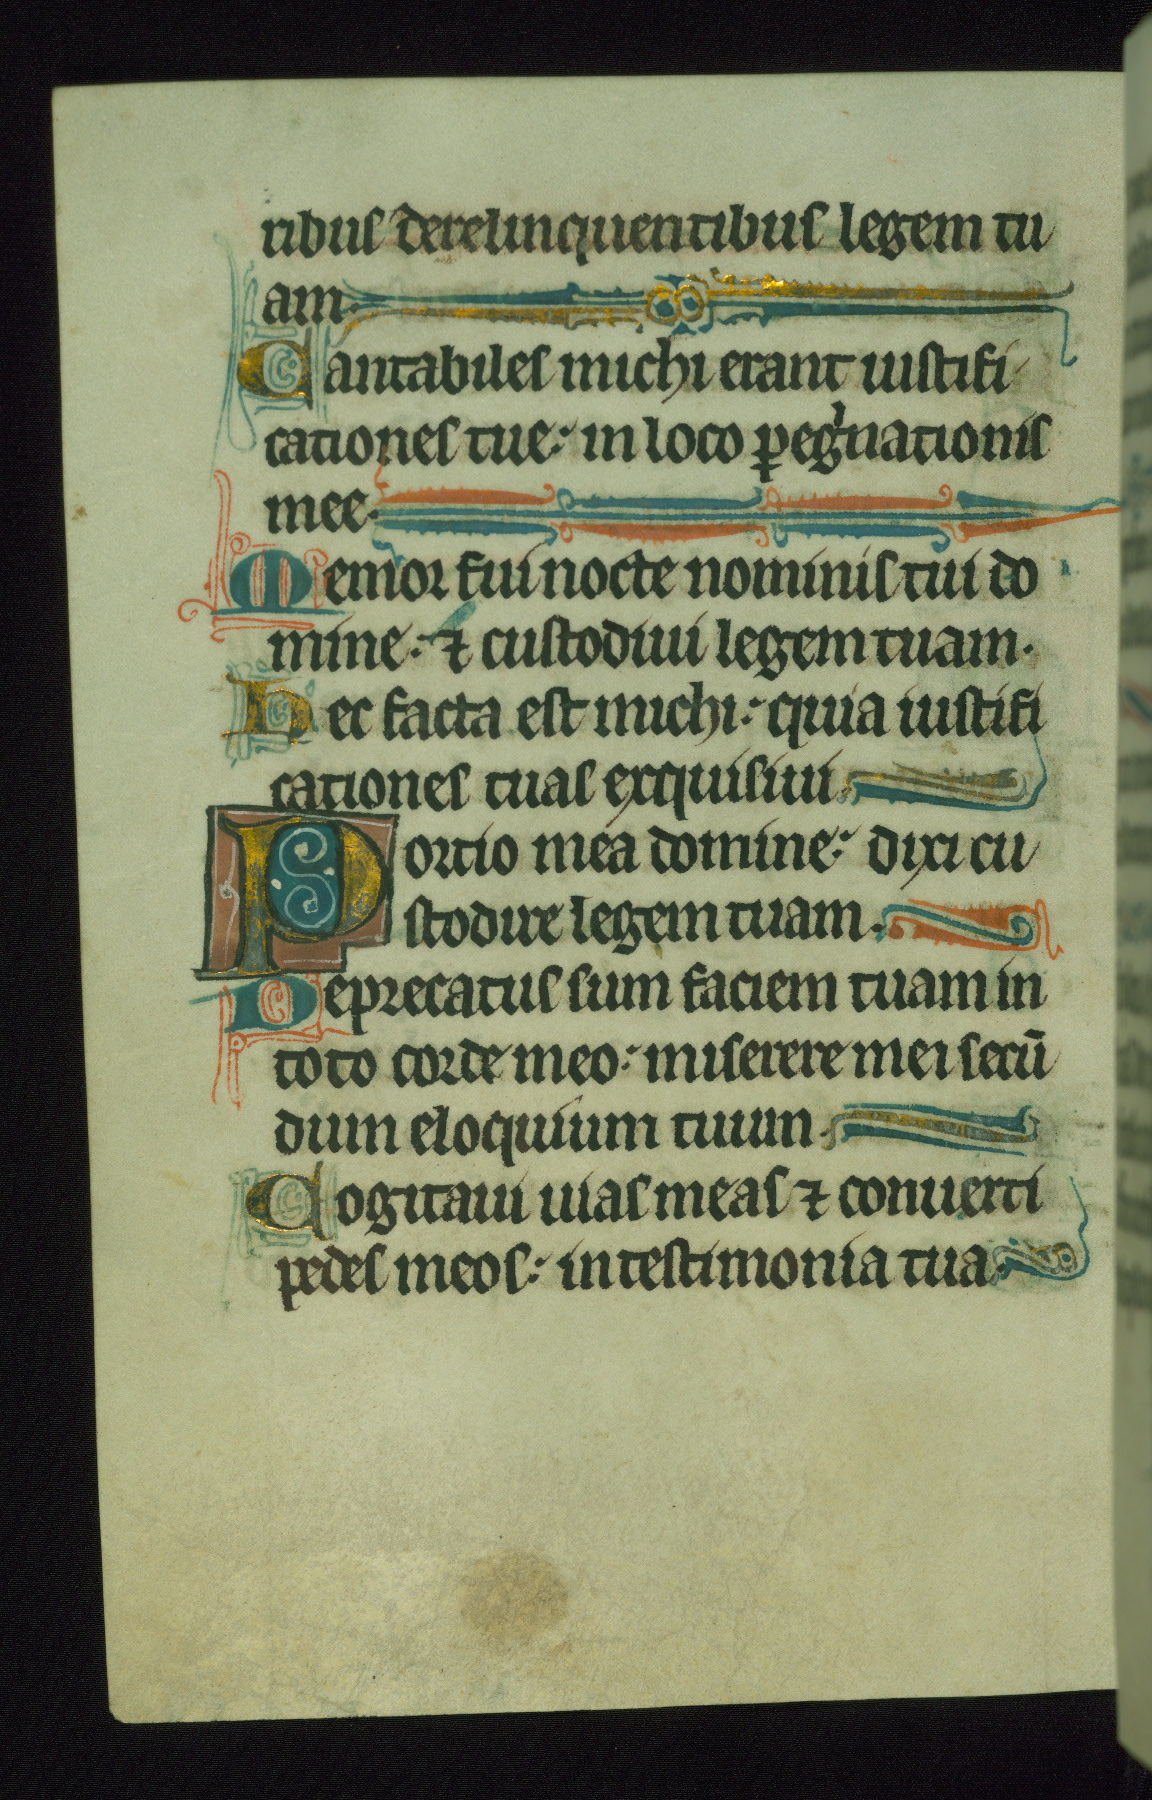 ribus derelinquentibus legem tu
am.
Cantabiles michi erant iustifi
cationes tue: in loco ꝑegͥnationis
mee.
Memor fui nocte nominis tui do
mine: ⁊ custodiui legem tuam.
Hec facta est michi: quia iustifi
cationes tuas exquisiui.
Portio mea domine: dixi cu
stodire legem tuam.
Deprecatus sum faciem tuam in
toto corde meo: miserere mei secū
dum eloquium tuum.
Cogitaui uias meas ⁊ conuerti
pedes meos: in testimonia tua.